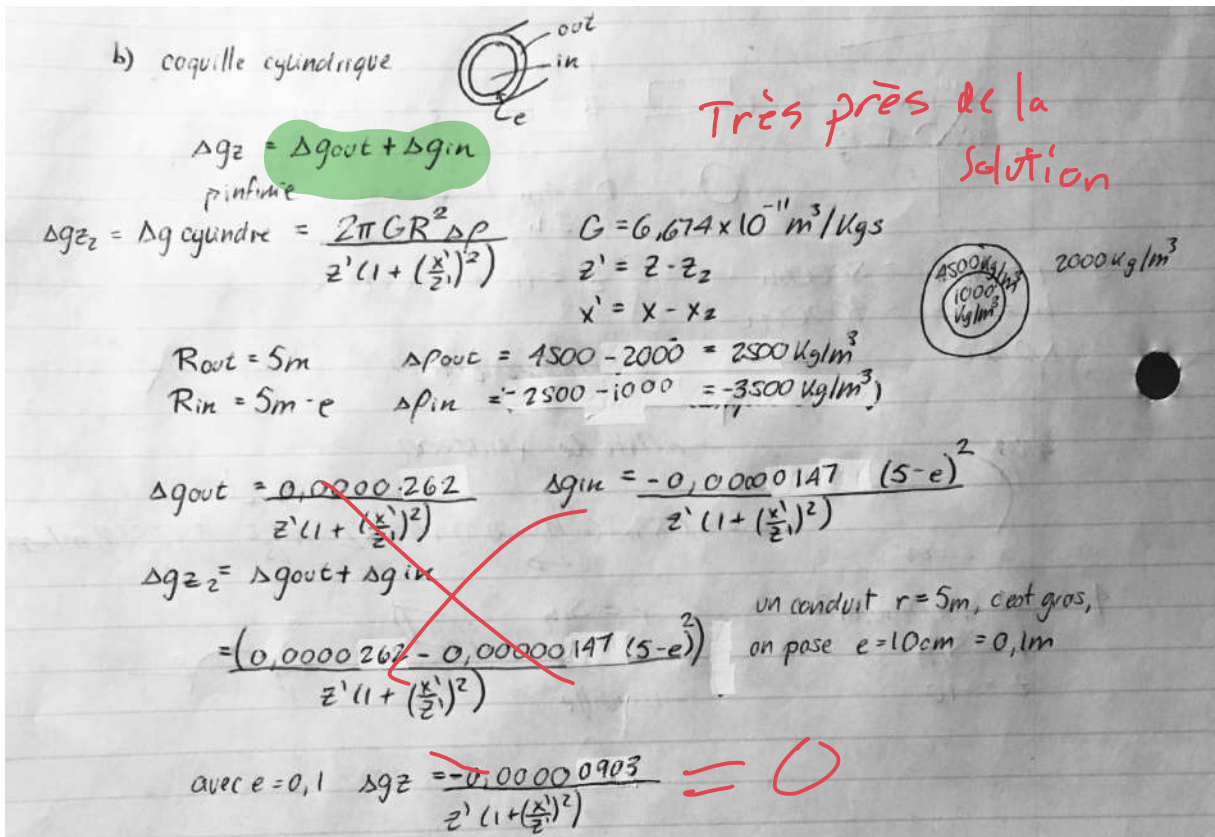 b) coquille cylindrique
out
in
e
Très près de la
solution
Δgz = Δgout + Δgin
p infinie
Δgz₂ = Δg cylindre = 2πGR²Δρ / z'(1 + (x'/z')²)
G = 6,674 x 10⁻¹¹ m³/Kgs
z' = z - z₂
x' = x - x₂
4500 kg/m³
1000 kg/m³
2000 kg/m³
Rout = 5m Δρout = 4500 - 2000 = 2500 Kg/m³
Rin = 5m - e Δρin = -2500 - 1000 = -3500 kg/m³)
Δgout = 0,0000262 / z'(1 + (x'/z')²) Δgin = -0,00000147 (5-e)² / z'(1 + (x'/z')²)
Δgz₂ = Δgout + Δgin
= (0,0000262 - 0,00000147 (5-e)²) / z'(1 + (x'/z')²)
un conduit r = 5m, c'est gros,
on pose e = 10cm = 0,1m
avec e = 0,1 Δgz = -0,00000903 / z'(1+(x'/z')²) = 0